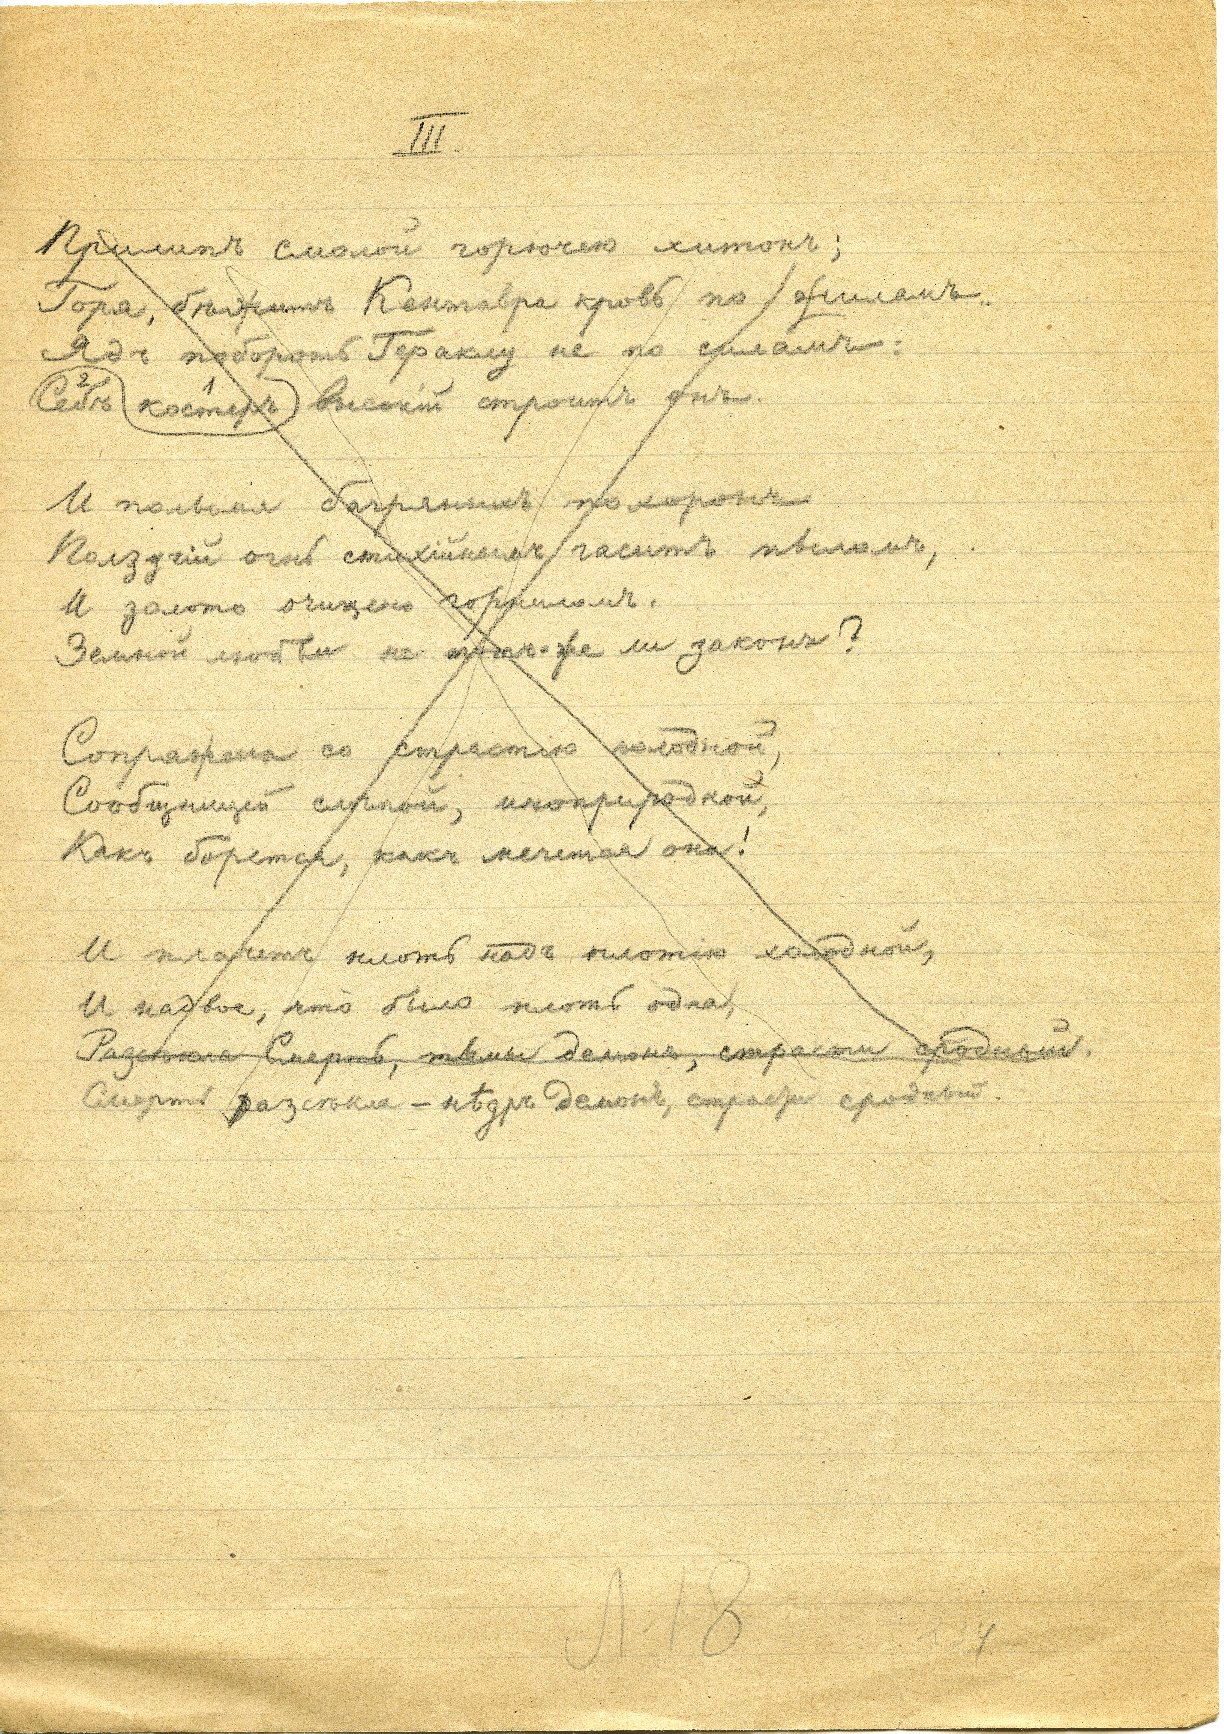 III.
Прилипъ смолой горючею хитонъ;
Горя, бѣжитъ Кентавра кровь по жиламъ..
Ядъ побороть Гераклу не по силамъ:
Себѣ 2 костеръ 1 высокій строитъ онъ.
И полымя багряныхъ похоронъ
Ползучій огнь стихійнымъ гаситъ пыломъ,
И золото очищено горниломъ.
Земной любви не тотъ-же ли законъ?
Сопряжена со страстію холодной,
Сообщницей слѣпой, иноприродной,
Какъ борется, какъ мечется она!
И плачетъ плоть надъ плотію холодной,
И надвое, что было плоть одна,
Разсѣкла Смерть, тьмы демонъ, страсти сродный.
Смерть разсѣкла – нѣдръ демонъ, страсти сродный.
Л. 18